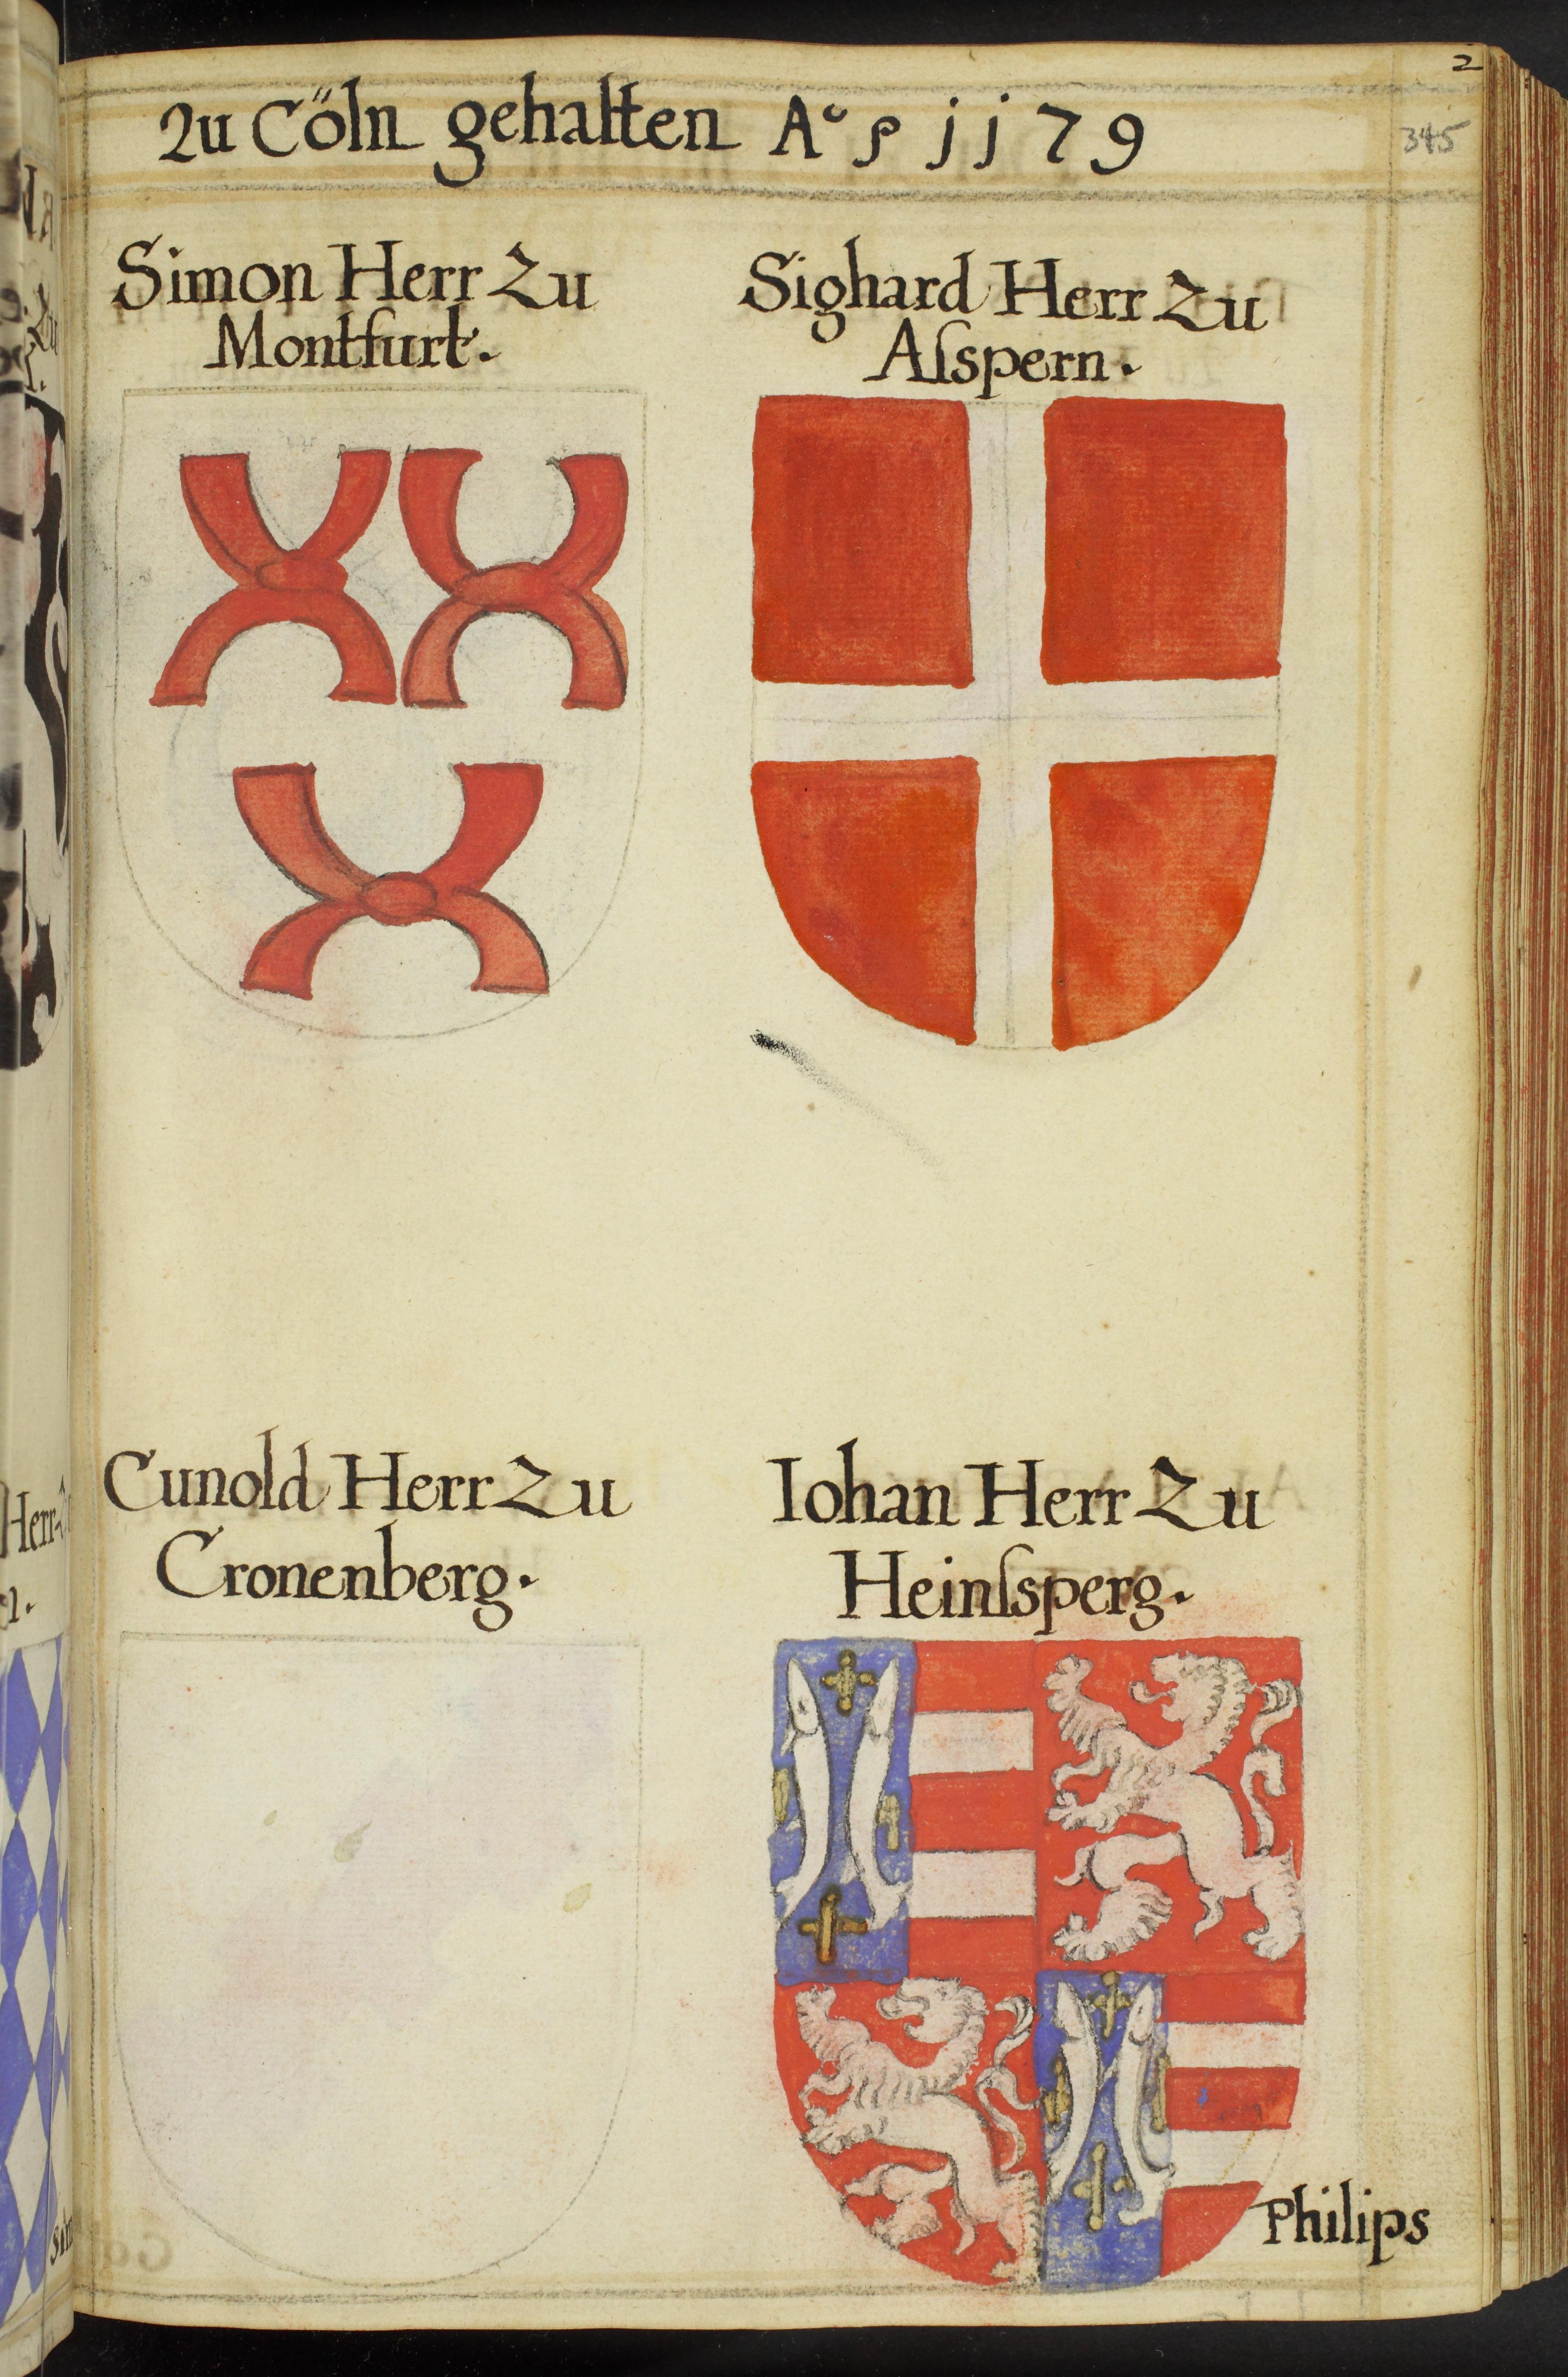 2
345
Zu Cöln gehalten A° p 1179
Simon Herr Zu
Montfurt.
Sighard Herr Zu
Aſspern.
Cunold Herr Zu
Cronenberg.
Iohan Herr Zu
Heinſsperg.
Philips